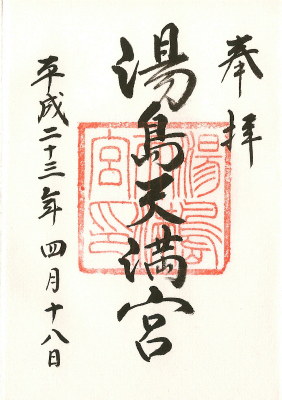 奉拝
湯島天満宮
平成二十三年四月十八日
湯島天満宮印